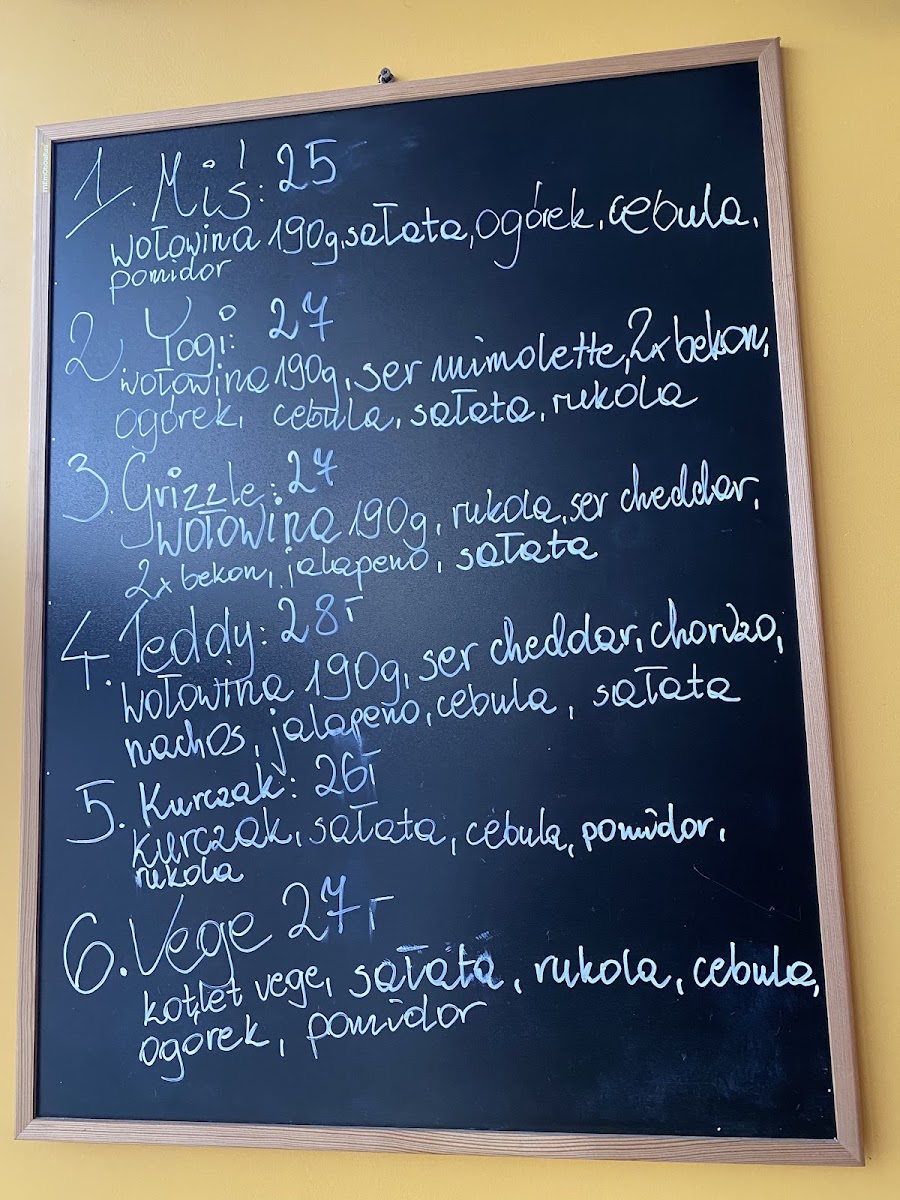 1. Miś: 25
wołowina 190g, sałata, ogórek, cebula,
pomidor
2. Yogi: 27
wołowina 190g, ser mimolette, 2x bekon,
ogórek, cebula, sałata, rukola
3. Grizzle: 27
wołowina 190g, rukola, ser cheddar,
2x bekon, jalapeno, sałata
4. Teddy: 28
wołowina 190g, ser cheddar, chorizo,
nachos, jalapeño, cebula, sałata
5. Kurczak: 26
kurczak, sałata, cebula, pomidor,
rukola
6. Vege 27
kotlet vege, sałata, rukola, cebula,
ogórek, pomidor